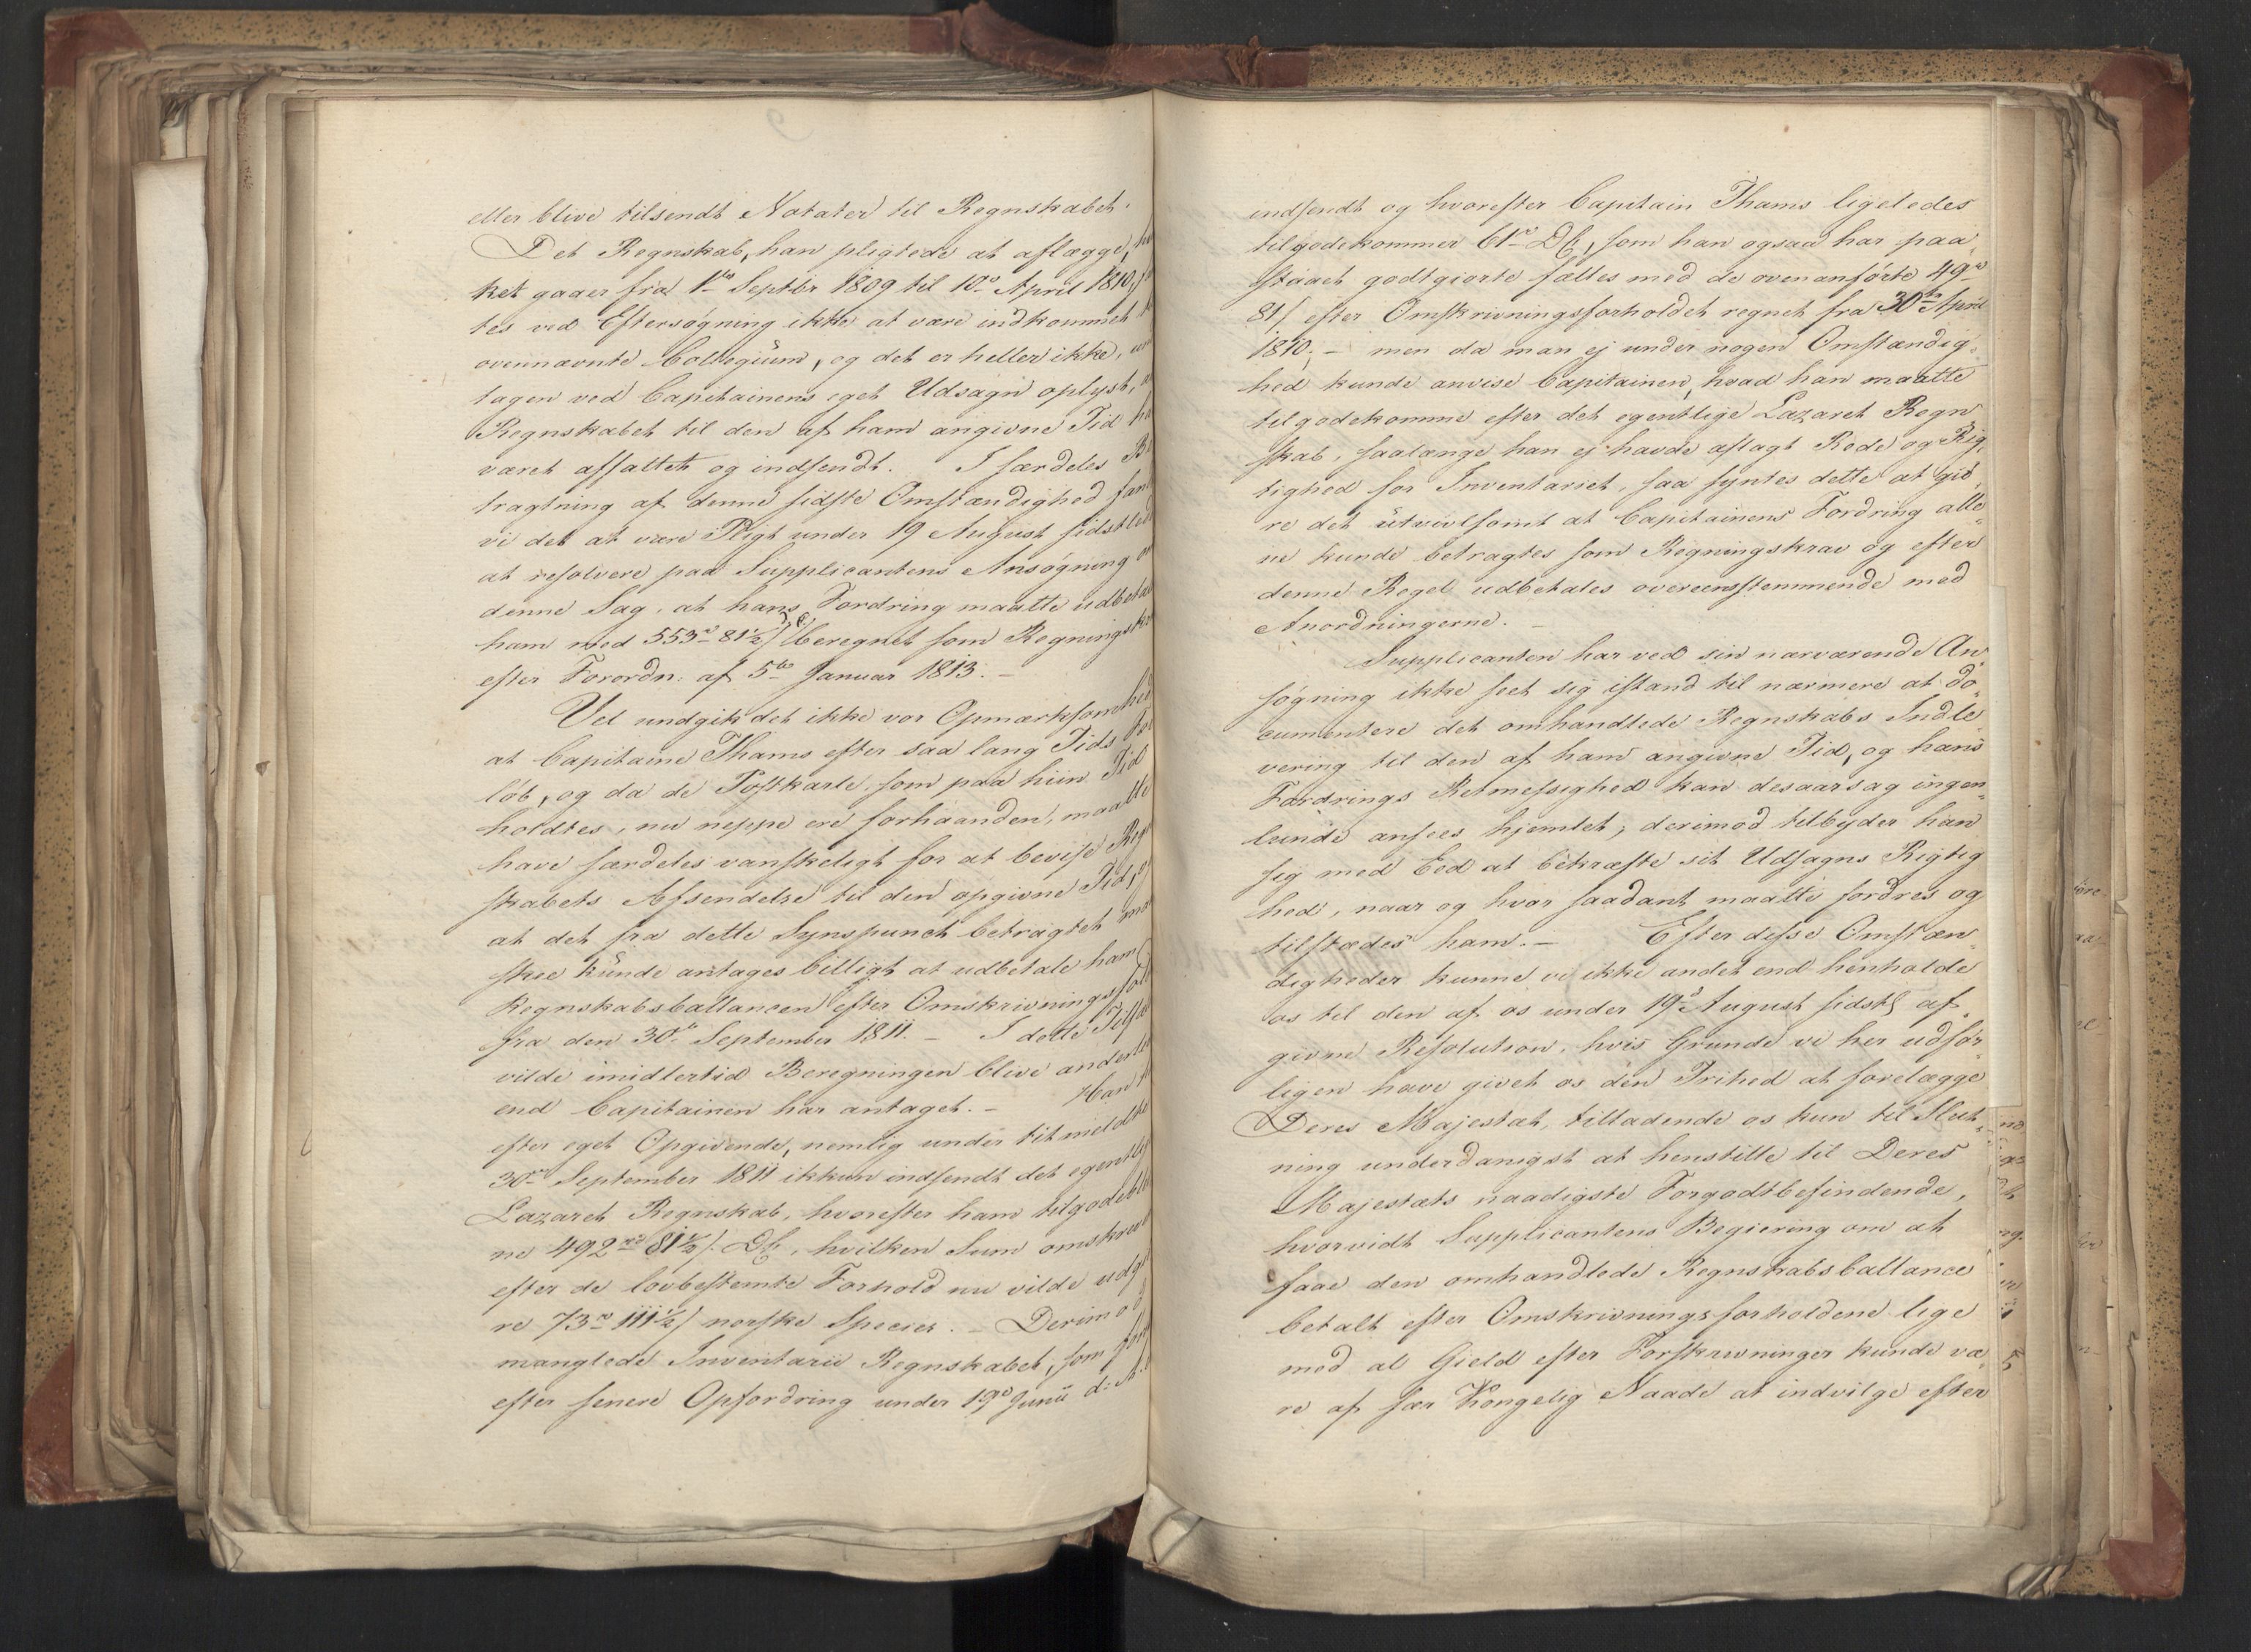 eller blive tilsendt Notater til Regnskabet.
Det Regnskab, han pligtede at aflægge,
ket gaaer fra 1te Septbr 1809 til 10de April 1810,
tes ved Eftersøgning ikke at være indkommet
ovennævnte Collegium, og det er heller ikke,
tagen ved Capitainens eget Udsagn oplyst,
Regnskabet til den af ham angivne Tid
været affattet og indsendt. I særdeles Be
tragtning af denne sidste Omstændighed fan
vi det at være Pligt under 19 August sidstled
at resolvere paa Supplicantens Ansøgning
denne Sag, at hans Fordring maatte udbetal
ham med 553rd 81½s beregnet som Regningskr
efter Forordn: af 5te Januar 1813. –
Vel undgik det ikke vor Opmærksomhed
at Capitaine Thams efter saa lang Tids For
løb, og da de Postkarte, som paa hiin Tid
holdtes, nu neppe ere forhaanden, maatte
have særdeles vanskeligt for at bevise Regn
skabets Afsendelse til den opgivne Tid,
at det fra dette Synspunct betragtet maa
skee kunde antages billigt at udbetale ham
Regnskabsballancen efter Omskrivningsforh
fra den 30te September 1811. – I dette Tilfæ
vilde imidlertid Beregningen blive anderle
end Capitainen har antaget. – Han
efter eget Opgivende, nemlig under titmeldte
30te September 1811 ikkun indsendt det egentlig
Lazaret Regnskab, hvorefter ham tilgodeble
ne 492rd 81½s. DC, hvilken Sum omskreve
efter de lovbestemte Forhold nu vilde udgiø
re 73rd 111½s norske Species. – Derimod
manglede Inventarie Regnskabet, som først
efter senere Opfordring under 19de Junii d: A.
indsendt og hvorefter Capitain Thams ligeledes
tilgodekommer 61rd DC, som han ogsaa har paa„
staaet godtgiorte fælles med de ovenanførte 49rd
81s efter Omskrivningsforholdet regnet fra 30te April
1810; – men da man ej under nogen Omstændig„
hed kunde anvise Capitainen, hvad han maatte
tilgodekomme efter det egentlige Lazaret Regn
skab, saalænge han ej havde aflagt Rede og Rig„
tighed for Inventariet, saa syntes dette at giø„
re det utvivlsomt at Capitainens Fordring alle„
ne kunde betragtes som Regningskrav og efter
denne Regel udbetales overeensstemmende med
Anordningerne. –
Supplicanten har ved sin nærværende An„
søgning ikke seet sig istand til nærmere at do„
cumentere det omhandlede Regnskabs Indle„
vering til den af ham angivne Tid, og hans
Fordrings Retmessighed kan desaarsag ingen„
lunde ansees hjemlet; derimod tilbyder han
sig med Eed at bekræfte sit Udsagns Rigtig
hed, naar og hvor saadant maatte fordres og
tilstædes ham. – Efter disse Omstæn„
digheder kunne vi ikke andet end henholde
os til den af os under 19de August sidstl af„
givne Resolution, hvis Grunde vi her udfør„
ligen have givet os den Frihed at forelægge
Deres Majestæt, tilladende os kun til Slut„
ning underdanigst at henstille til Deres
Majestæts naadigste Forgodtbefindende,
hvorvidt Supplicantens Begiering om at
faae den omhandlede Regnskabsballance
betalt efter Omskrivningsforholdene lige
med al Gield efter Forskrivninger kunde væ„
re af sær Kongelig Naade at indvilge efter